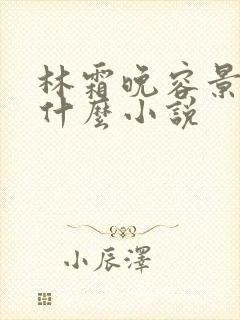 林霜晚容景
什麼小說
小辰澤